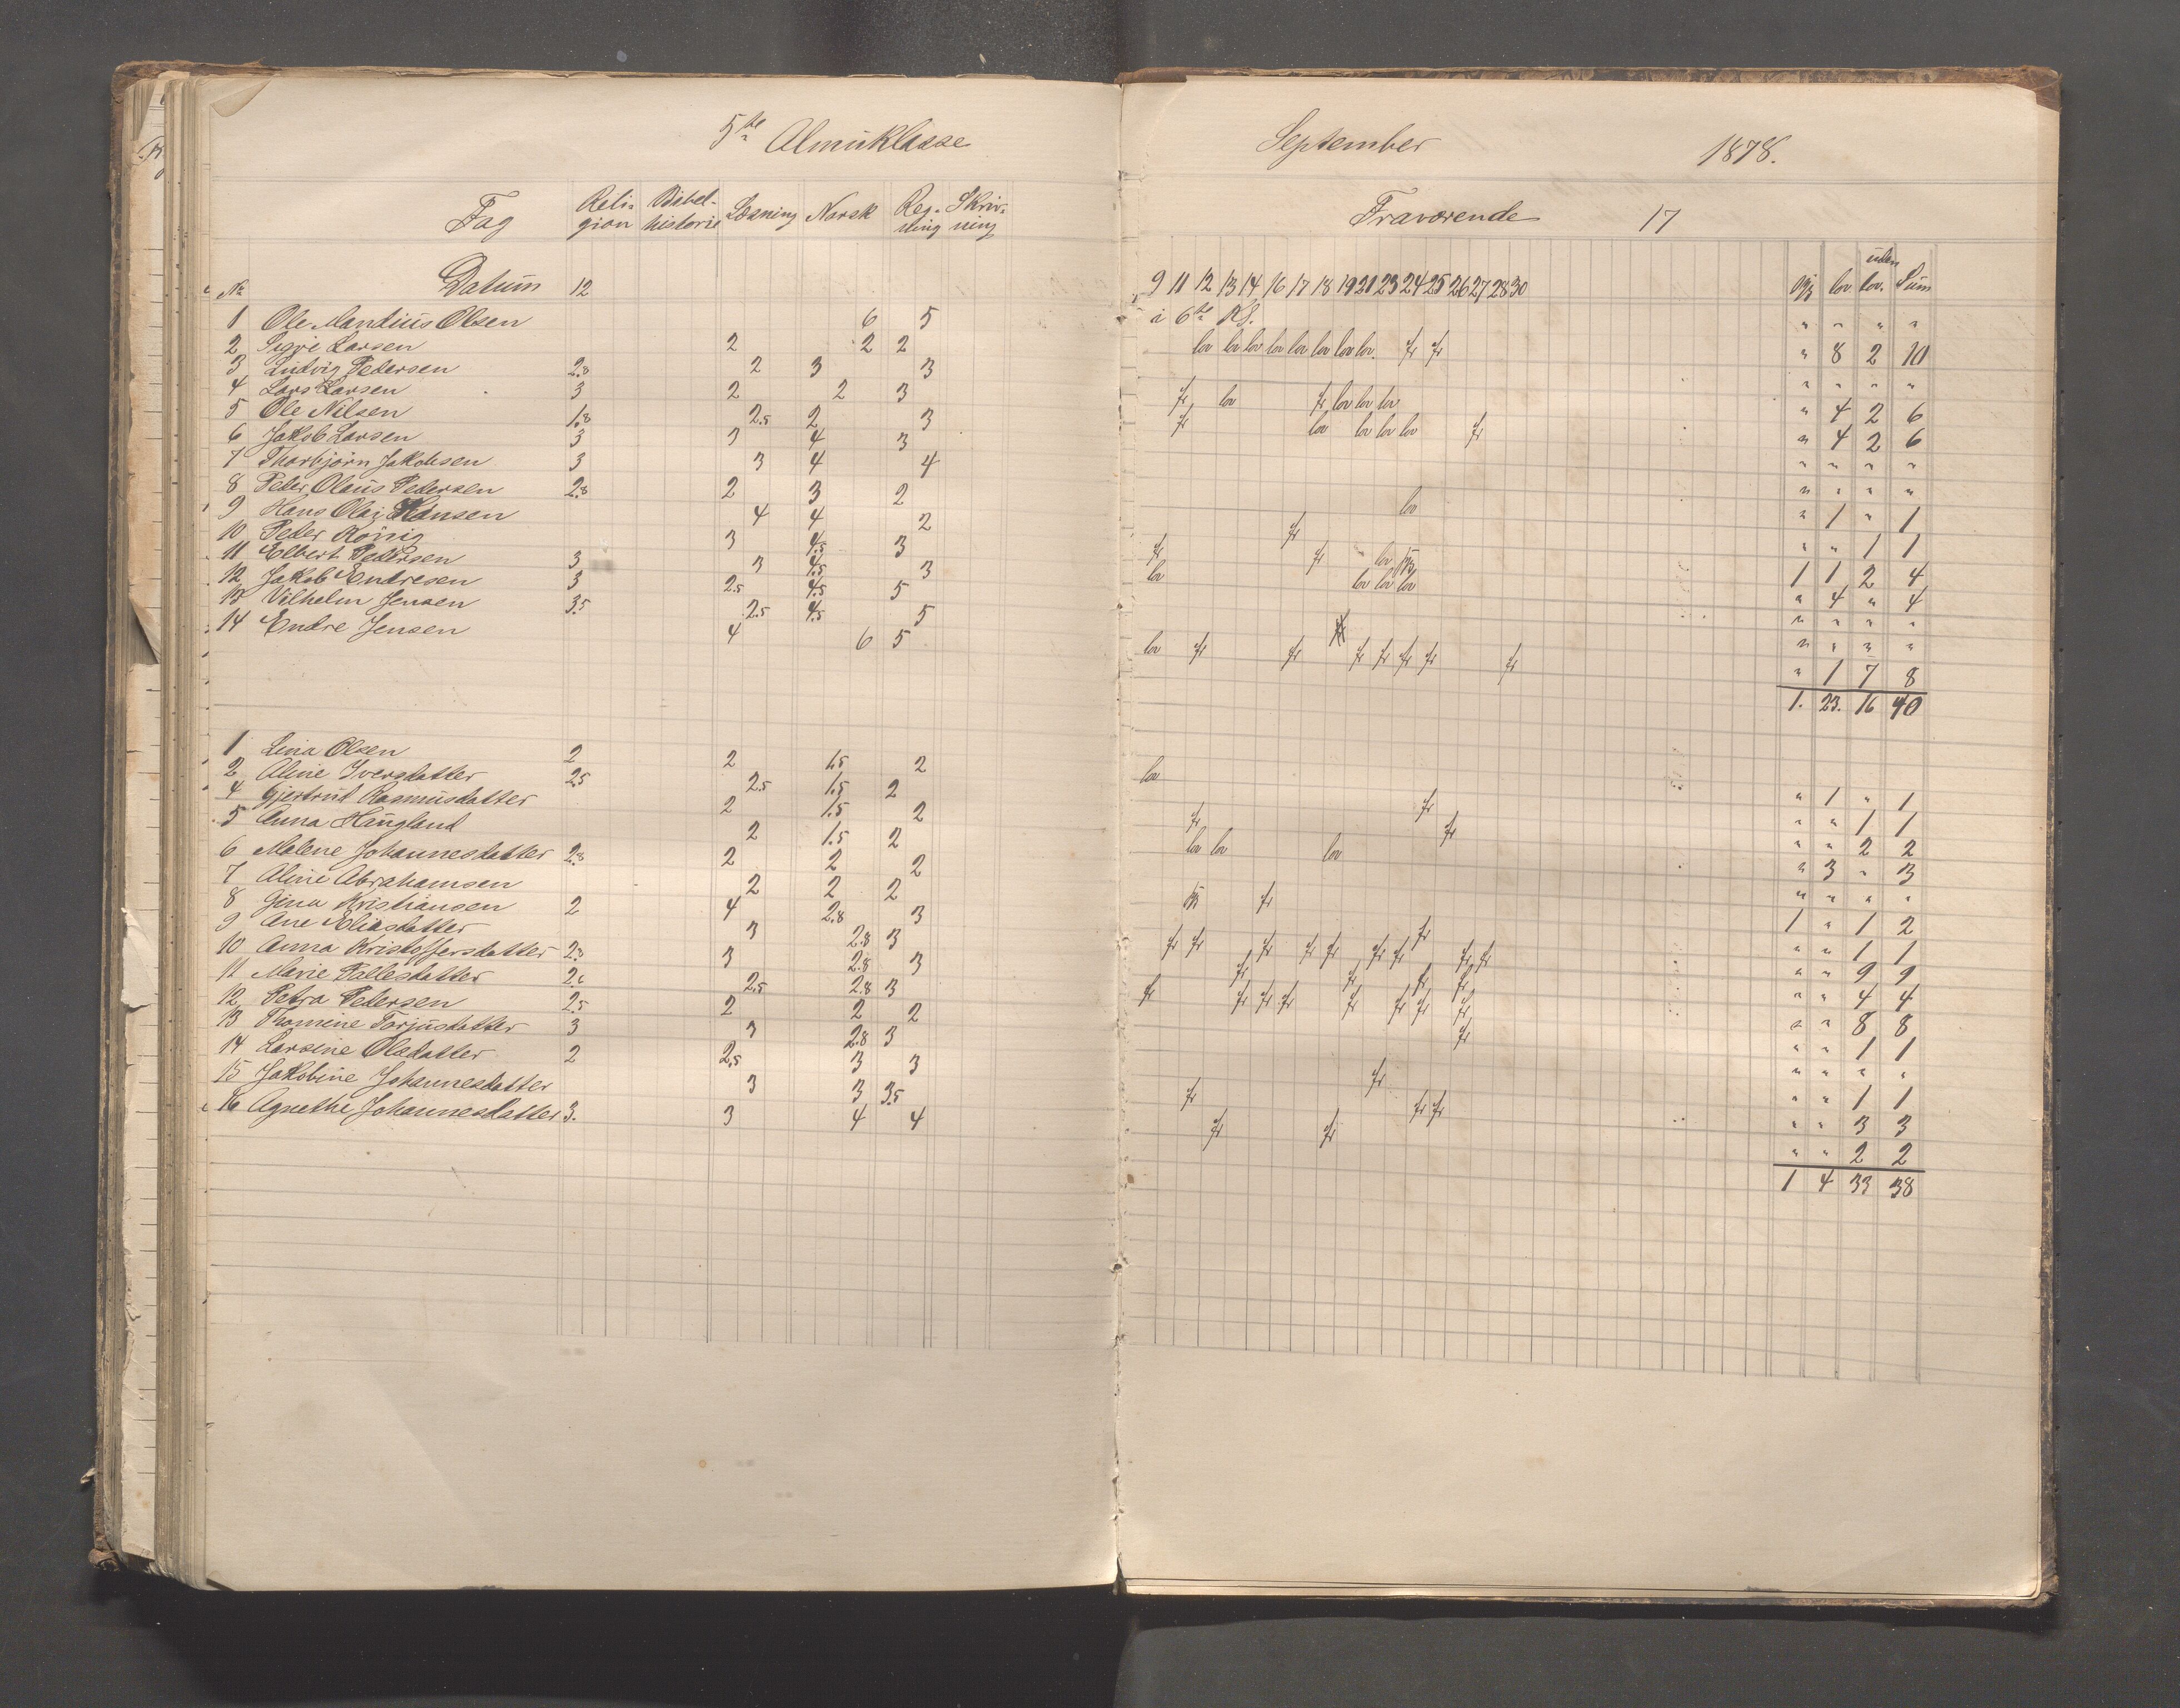 5te Almuklasse
Fag Reli- Bibel- Læsning Norsk Reg- Skriv-
gion historie ning ning
No Datum 12
1 Ole Mandius Olsen 6 5
2 Sigve Larsen 2 2 2
3 Ludvig Pedersen 2.8 2 3 3
4 Lars Larsen 3 2 2 3
5 Ole Nilsen 1.8 2.5 2 3
6 Jakob Larsen 3 3 4 3
7 Thorbjørn Jakobsen 3 3 4 4
8 Peder Olaus Pedersen 2.8 2 3 2
9 Hans Olai Hansen 4 4 2
10 Peder König 3 4.5 3
11 Elbert Pedersen 3 3 4.5 3
12 Jakob Endresen 3 2.5 4.5 5
13 Vilhelm Jensen 3.5 2.5 4.5 5
14 Endre Jensen 4 6 5
1 Lina Olsen 2 2 1.5 2
2 Aline Iversdatter 2.5 2.5 1.5 2
4 Gjertrut Rasmusdatter 2 1.5 2
5 Anna Haugland 2 1.5 2
6 Malene Johannesdatter 2.8 2 2 2
7 Aline Abrahamsen 2 2 2
8 Gina Kristiansen 2 4 2.8 3
9 Ane Eliasdatter 3 2.8 3
10 Anna Kristoffersdatter 2.8 3 2.8 3
11 Marie Pallesdatter 2.6 2.5 2.8 3
12 Petra Pedersen 2.5 2 2 2
13 Thomine Torjusdatter 3 3 2.8 3
14 Larsine Olsdatter 2 2.5 3 3
15 Jakobine Johannesdatter 3 3 3.5
16 Agnethe Johannesdatter 3. 3 4 4
September 1878.
Fraværende 17
uden
9 11 12 13 14 16 17 18 19 21 23 24 25 26 27 28 30 lov lov. Sum
i 6te Kl. " " " "
lov lov lov lov lov lov lov lov. fr fr " 8 2 10
" " " "
fr lov fr lov lov lov " 4 2 6
fr lov lov lov lov fr " 4 2 6
" " " "
" " " "
lov " 1 " 1
fr " " 1 1
fr fr lov 1 1 2 4
lov lov lov lov " 4 " 4
" " " "
" " " "
lov fr fr fr fr fr fr fr " 1 7 8
1. 23. 16 40
lov " 1 " 1
fr " " 1 1
fr fr " " 2 2
lov lov lov " 3 " 3
" " " "
fr 1 " 1 2
fr " " 1 1
fr fr fr fr fr fr fr fr fr " " 9 9
fr fr fr fr " " 4 4
fr fr fr fr fr fr fr fr " " 8 8
fr " " 1 1
" " " "
fr " " 1 1
fr fr fr " " 3 3
fr fr " " 2 2
1 4 33 38